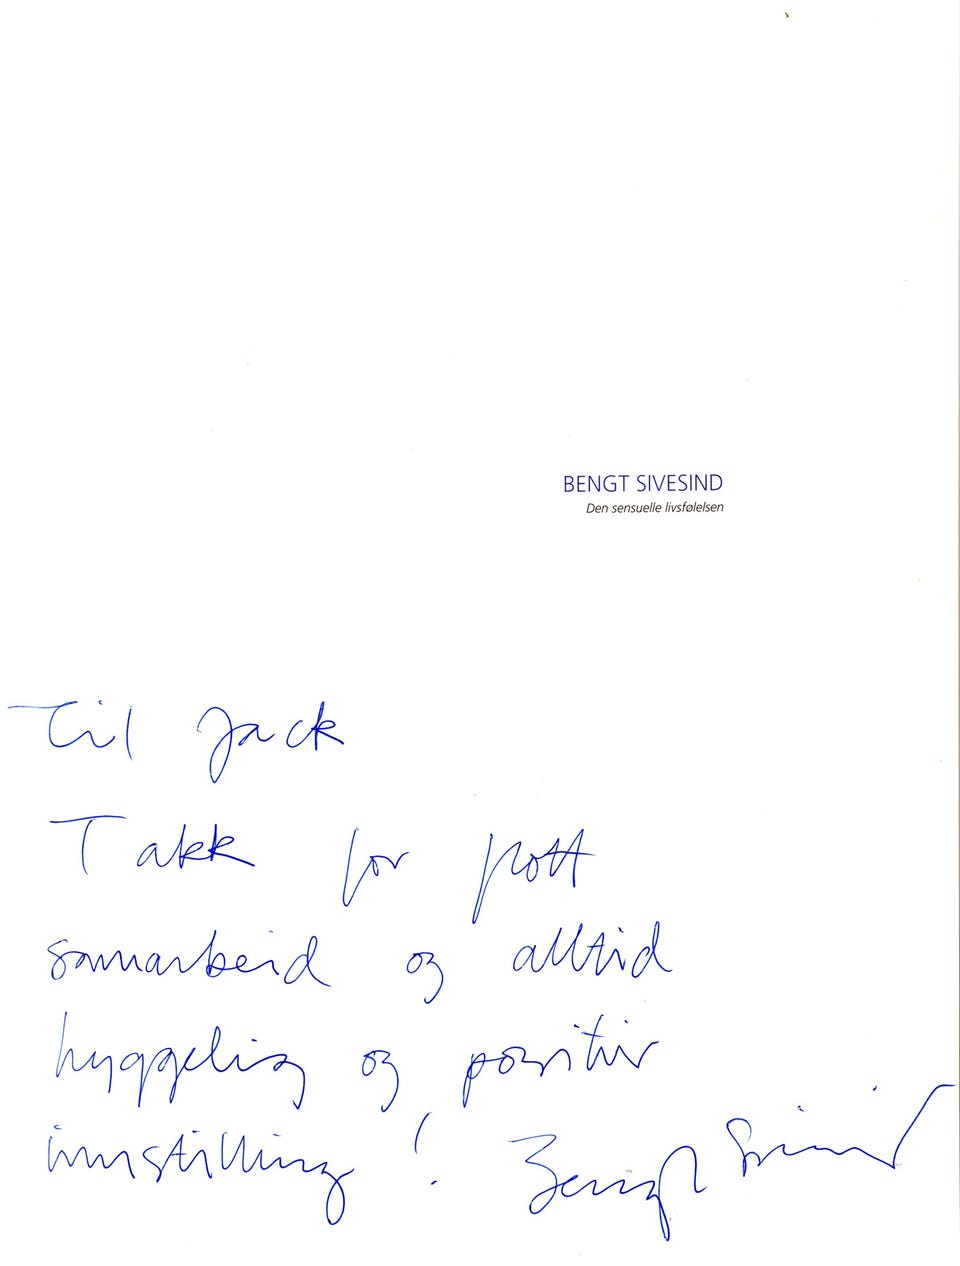 BENGT SIVESIND
Den sensuelle livsfølelsen
Til Jack
Takk for flott
samarbeid og alltid
hyggelig og positiv
innstilling!
Bengt Sivesind